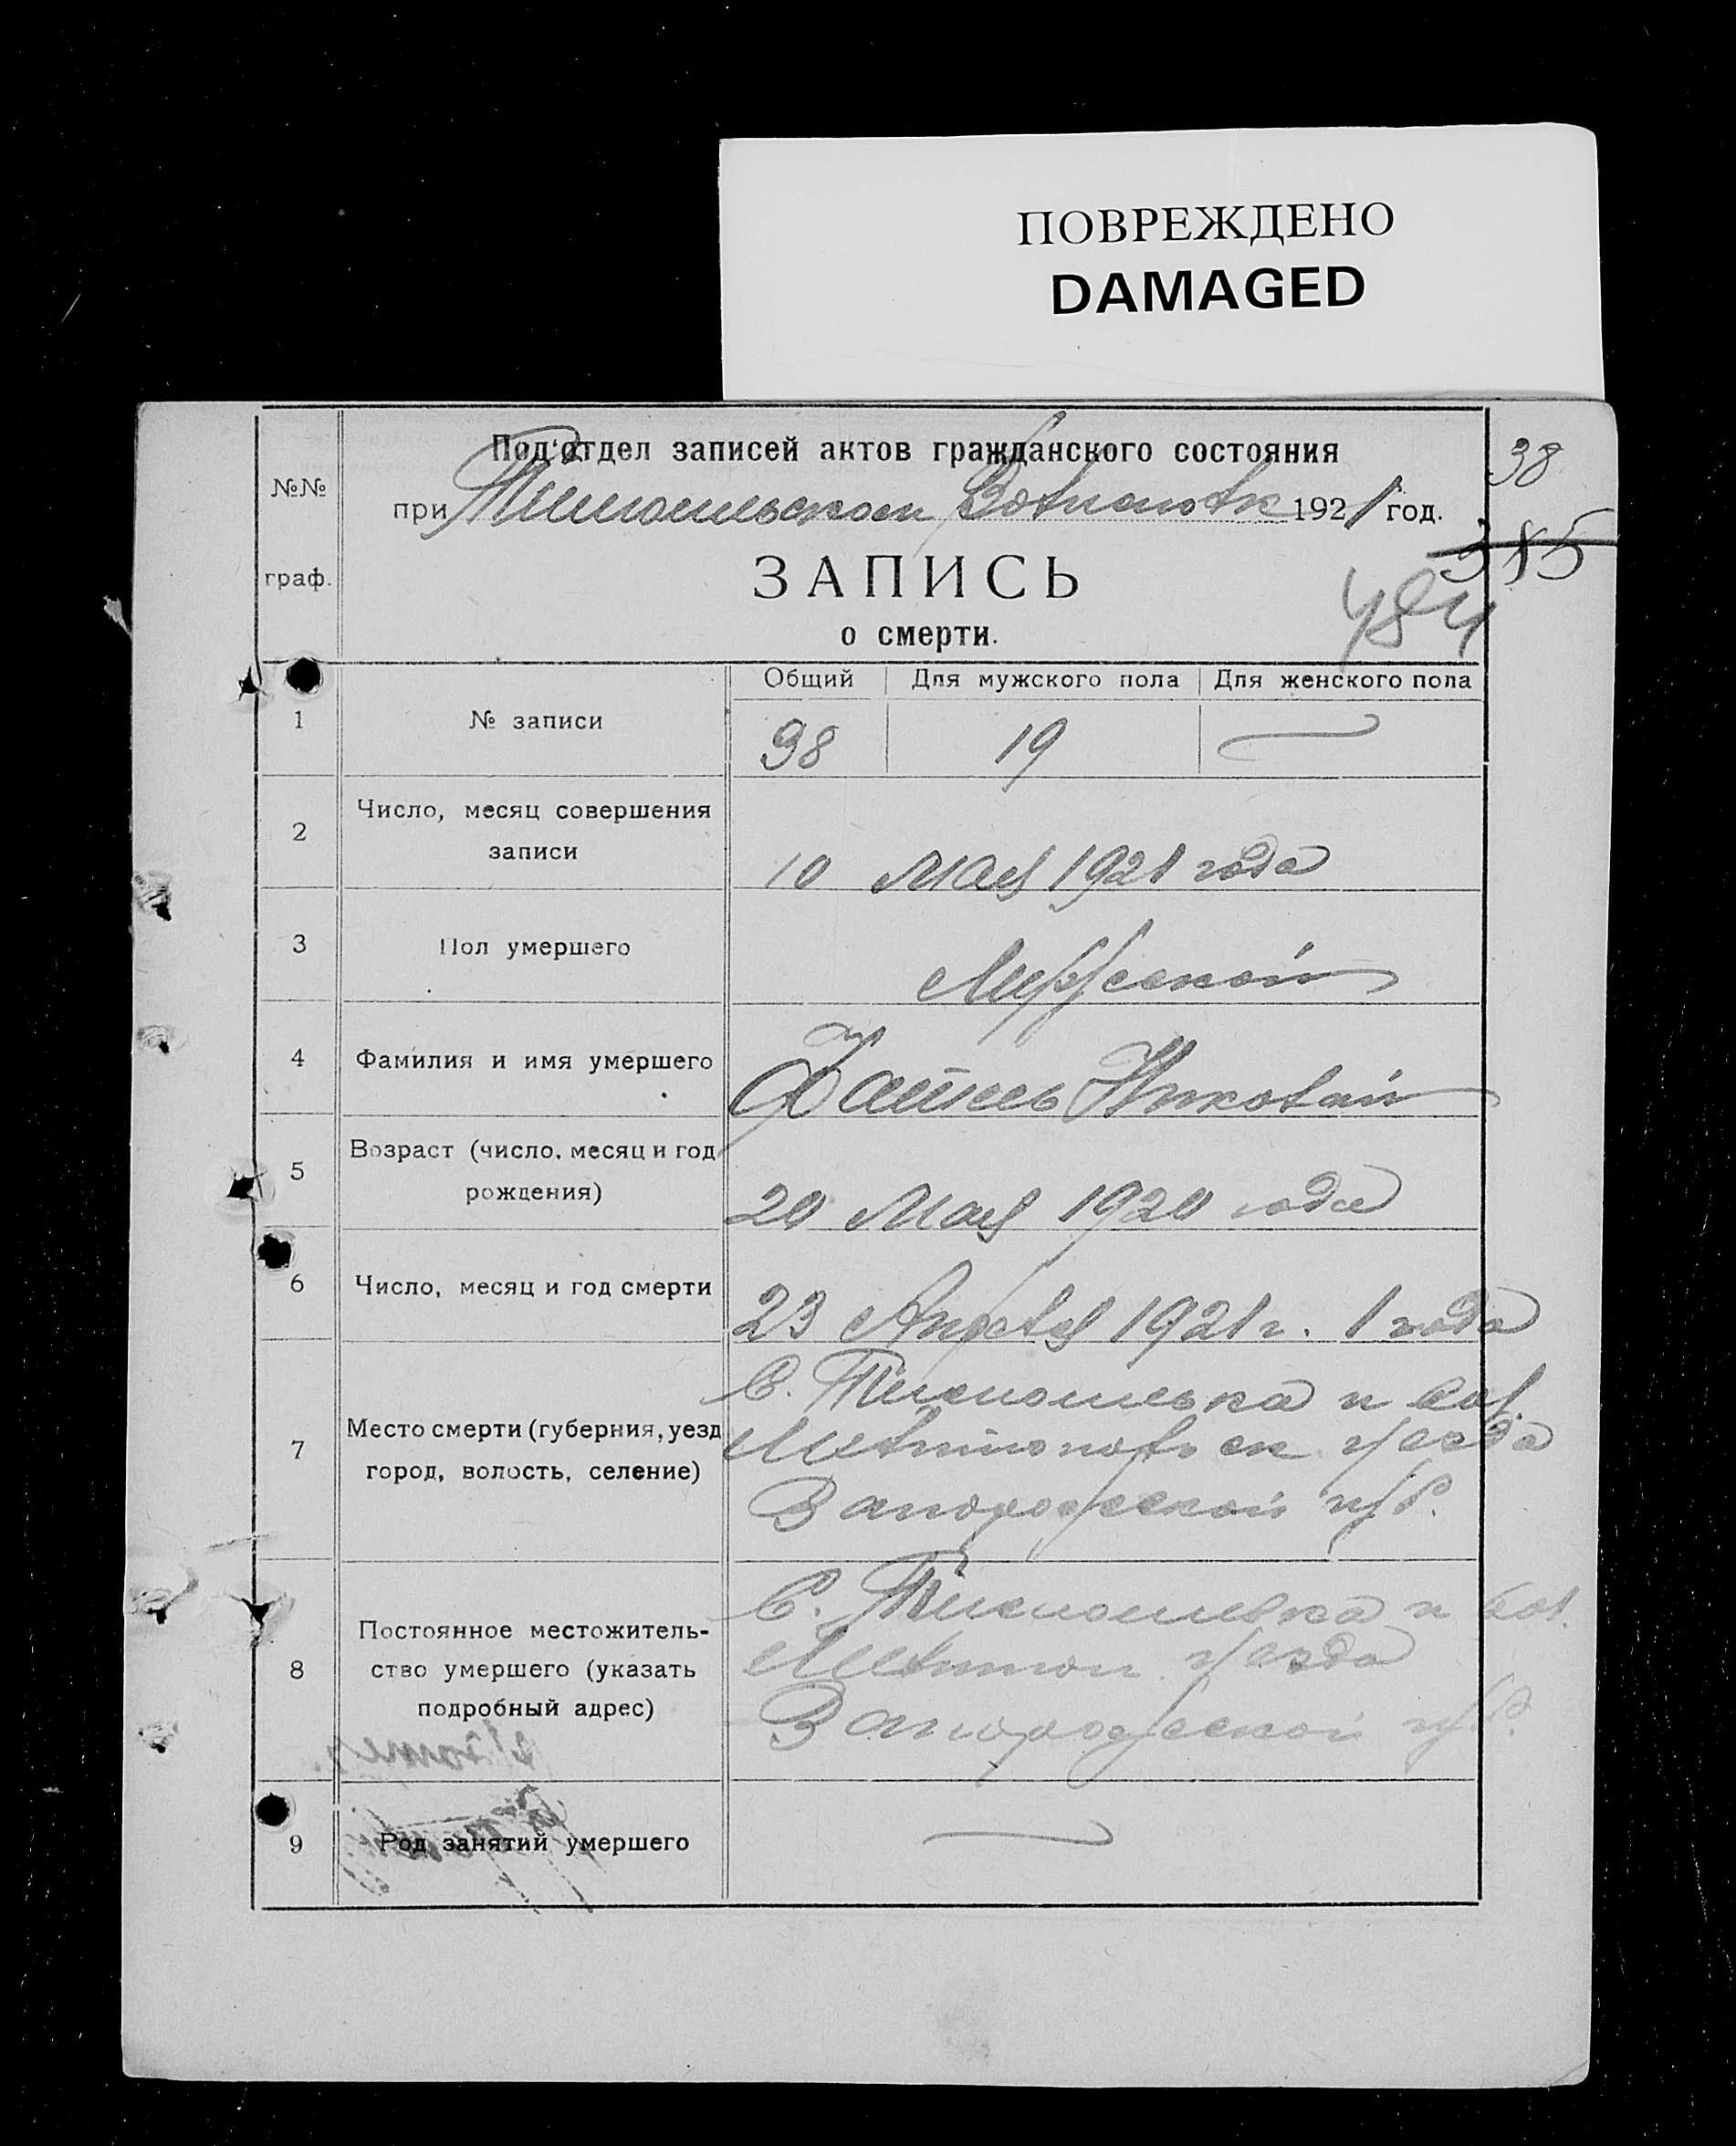 ПОВРЕЖДЕНО
DAMAGED
Под'отдел записей актов гражданского состояния
38
№№ граф.
при Тимошьвском Волисполк 1921 год.
385
ЗАПИСЬ
484
о смерти.
Общий Для мужского пола Для женского пола
1 № записи 98 19 —
2 Число, месяц совершения
записи 10 Мая 1921 года
3 Пол умершего Мужеской
4 Фамилия и имя умершего Николай
5 Возраст (число, месяц и год
рождения) 20 Мая 1920 года
6 Число, месяц и год смерти 23 Апреля 1921 г. 1 года
С. Тимошевка и вол.
7 Место смерти (губерния, уезд уезда
город, волость, селение)
Запорожеской губ.
С. Тимошевка и вол.
8 Постоянное местожитель-
ство умершего (указать Мелитоп уезда
подробный адрес) Запорожеской губ.
9 Род занятий умершего —